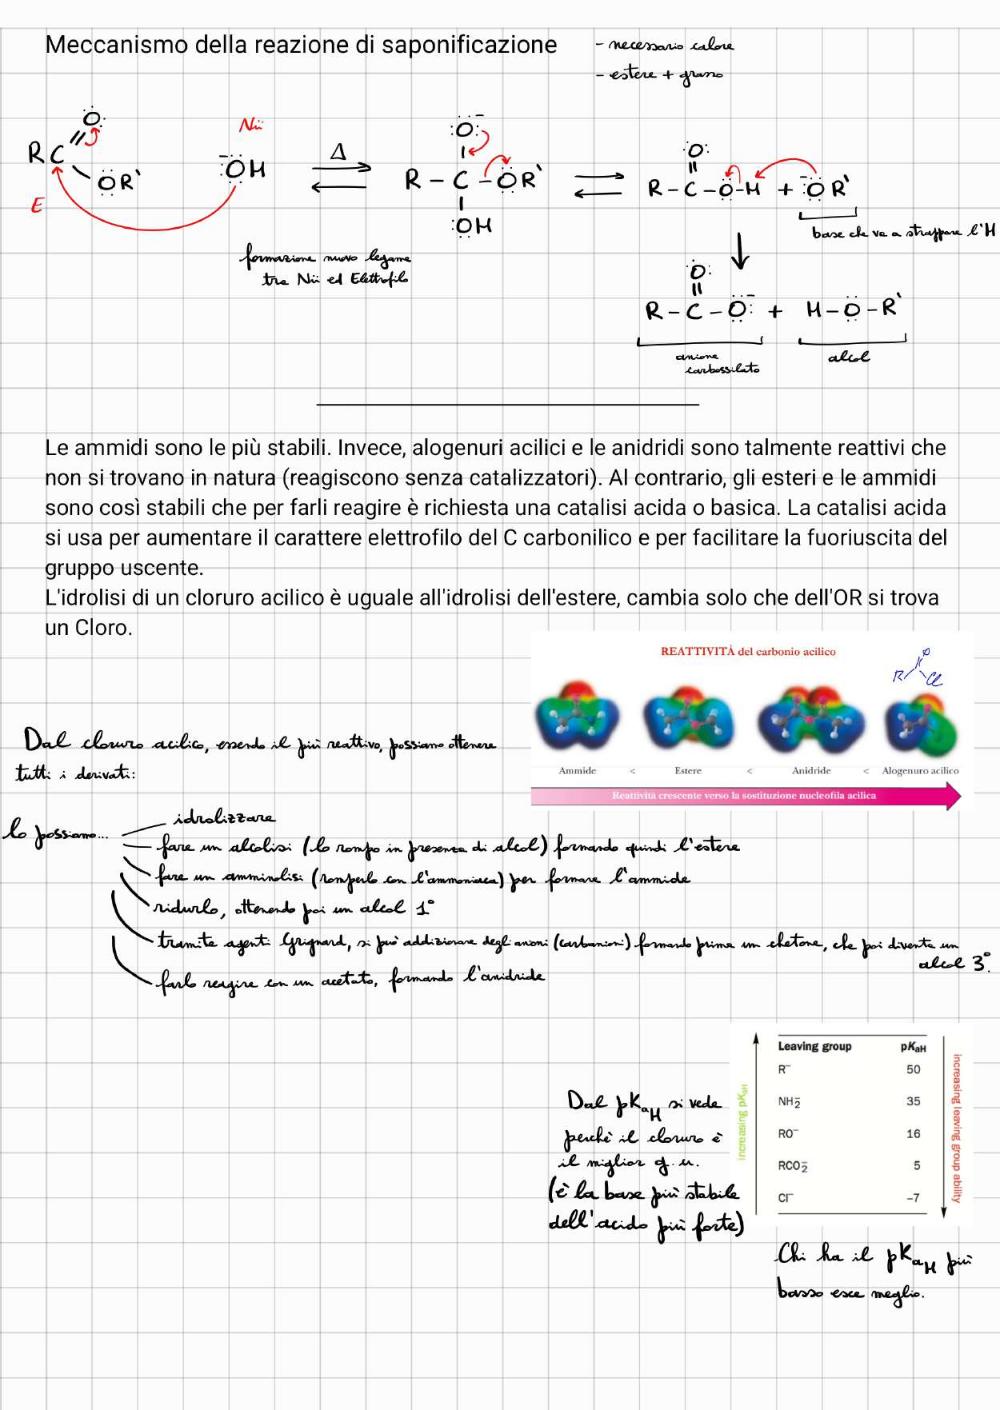 Meccanismo della reazione di saponificazione
- necessario calore
- estere + grasso
O
RC
OR'
E
Nü
⁻OH
Δ
O⁻
R - C - OR'
OH
O
R - C - O - H + ⁻O R'
base che va a strappare l'H
formazione nuovo legame
tra Nü ed Elettrofilo
O
R - C - O⁻ + H - O - R'
anione
carbossilato
alcol
Le ammidi sono le più stabili. Invece, alogenuri acilici e le anidridi sono talmente reattivi che
non si trovano in natura (reagiscono senza catalizzatori). Al contrario, gli esteri e le ammidi
sono così stabili che per farli reagire è richiesta una catalisi acida o basica. La catalisi acida
si usa per aumentare il carattere elettrofilo del C carbonilico e per facilitare la fuoriuscita del
gruppo uscente.
L'idrolisi di un cloruro acilico è uguale all'idrolisi dell'estere, cambia solo che dell'OR si trova
un Cloro.
REATTIVITÀ del carbonio acilico
O
R Cl
Ammide < Estere < Anidride < Alogenuro acilico
Reattività crescente verso la sostituzione nucleofila acilica
Dal cloruro acilico, essendo il più reattivo, possiamo ottenere
tutti i derivati:
lo possiamo...
idrolizzare
fare un alcolisi (lo rompo in presenza di alcol) formando quindi l'estere
fare un amminolisi (romperlo con l'ammoniaca) per formare l'ammide
ridurlo, ottenendo poi un alcol 1°
tramite agenti Grignard, si può addizionare degli anioni (carbanioni) formando prima un chetone, che poi diventa un
alcol 3°.
farlo reagire con un acetato, formando l'anidride
Dal pKaH si vede
perchè il cloruro è
il miglior g.u.
(è la base più stabile
dell'acido più forte)
increasing pKaH
Leaving group pKaH
R⁻ 50
NH₂⁻ 35
RO⁻ 16
RCO₂⁻ 5
Cl⁻ –7
increasing leaving group ability
Chi ha il pKaH più
basso esce meglio.